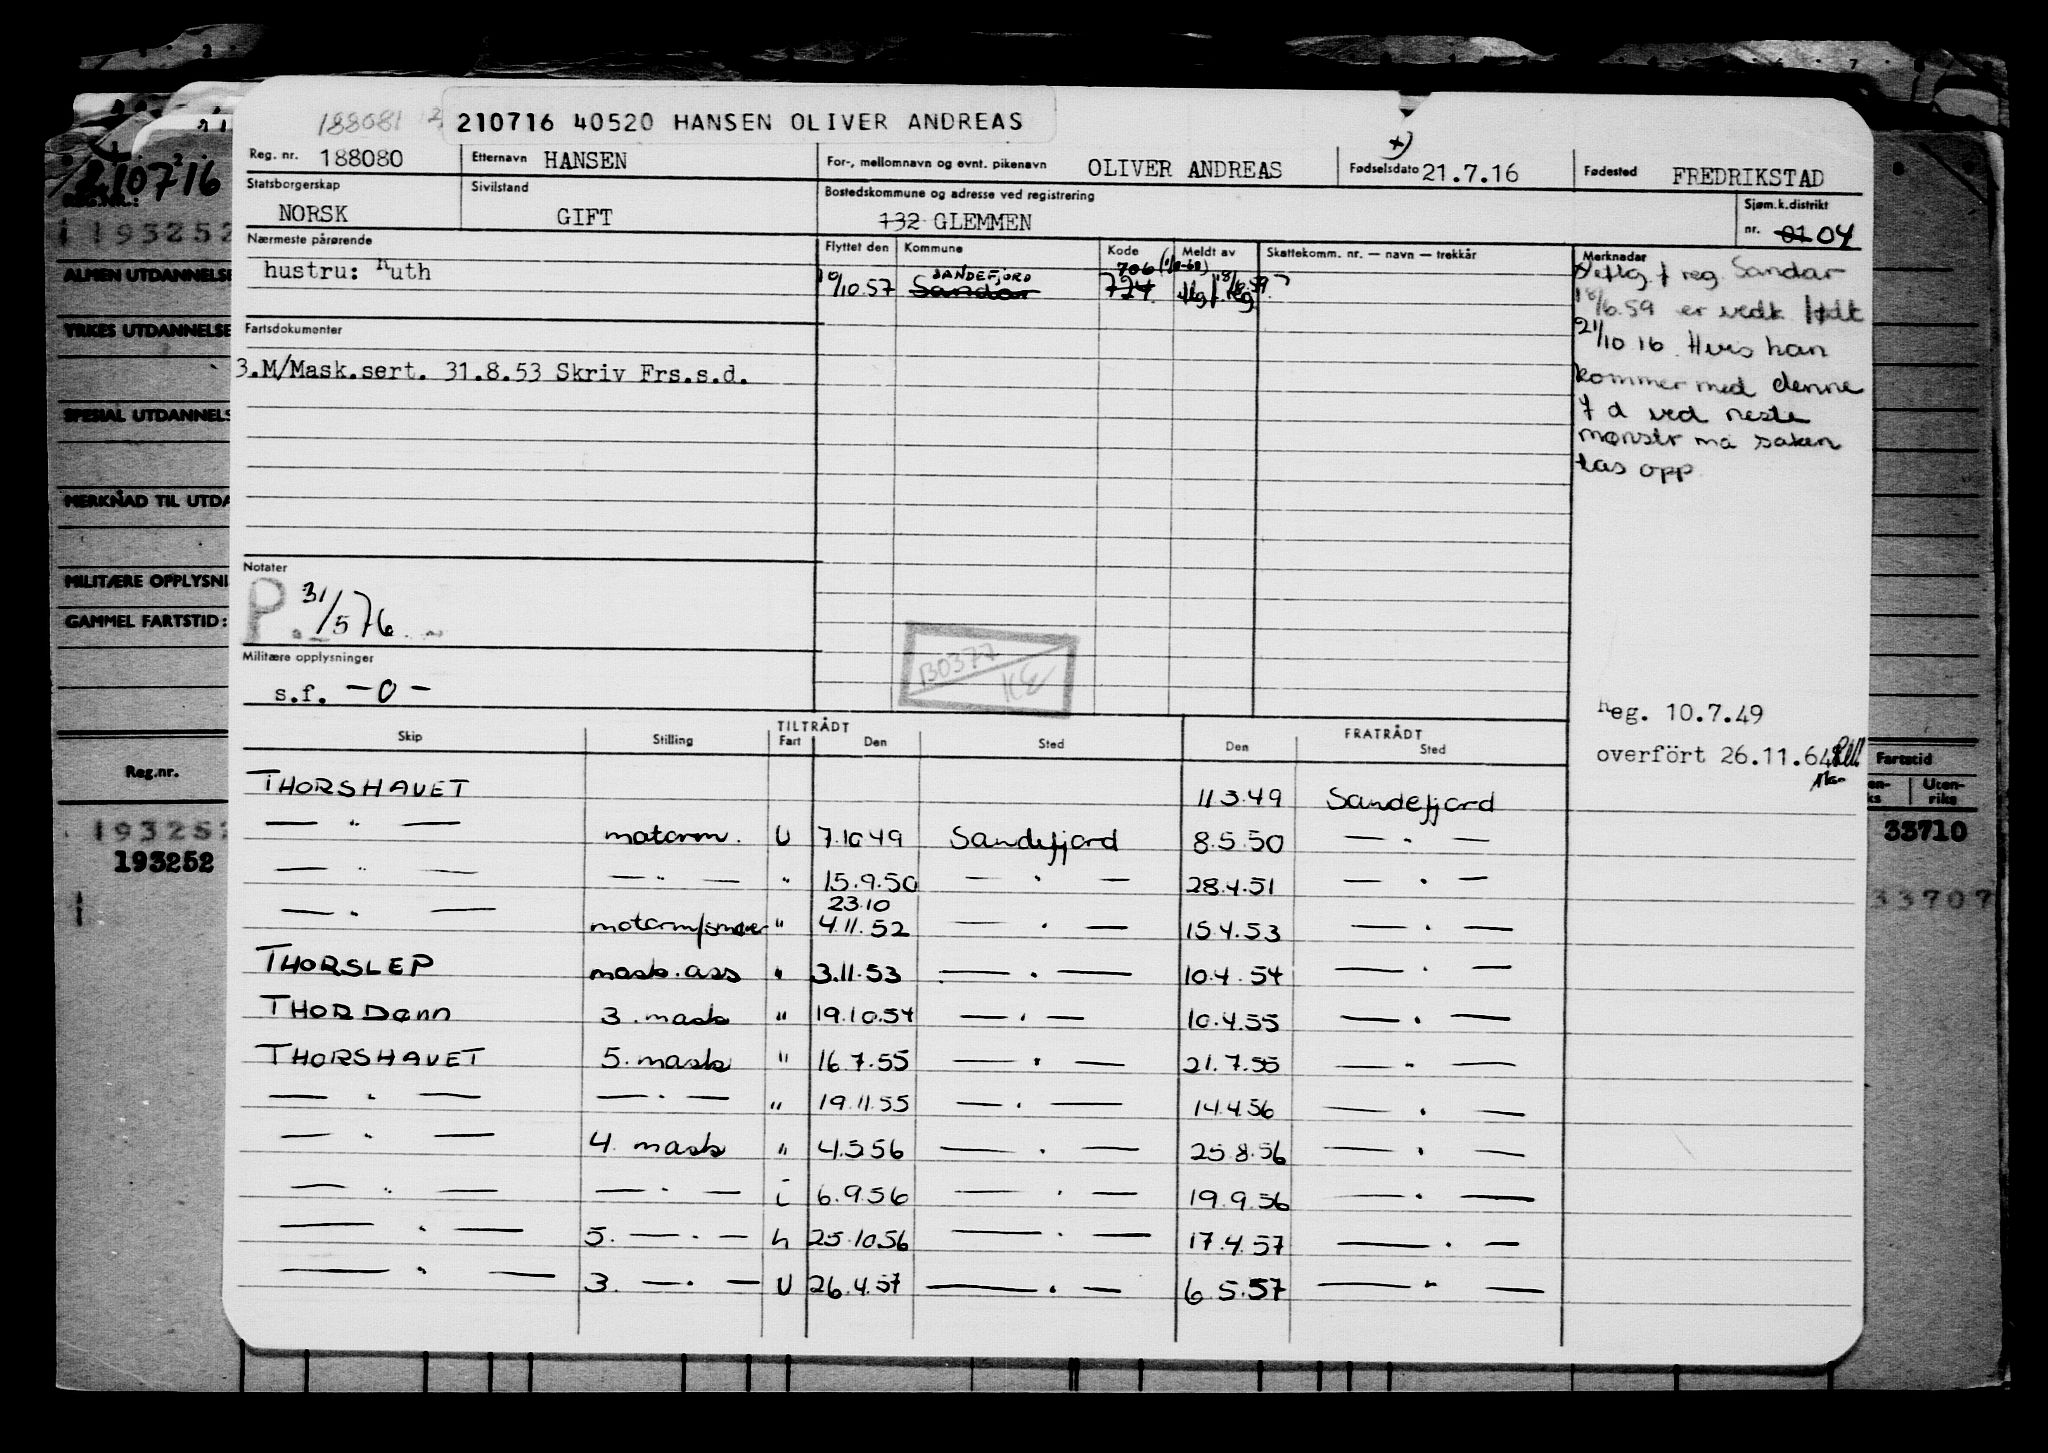 188081
210716 40520 HANSEN OLIVER ANDREAS
Reg. nr. 188080 Etternavn HANSEN For-, mellomnavn og evnt. pikenavn OLIVER ANDREAS Fødselsdato 21.7.16 Fødested FREDRIKSTAD
+)
Statsborgerskap NORSK Sivilstand GIFT Bostedskommune og adresse ved registrering 132 GLEMMEN Sjøm.k.distrikt nr. 01 04
Nærmeste pårørende
hustru: Ruth
Flyttet den Kommune Kode Meldt av Skattekomm. nr. — navn — trekkår Merknader
SANDEFJORD 706 (1/1-68)
10/10.57 Sandar 724 flg f. reg 18/6.59
flg. f reg. Sandar
18/6.59 er vedk. født
21/10 16. Hvis han
kommer med denne
f d ved neste
mønstr må saken
tas opp
Fartsdokumenter
3.M/Mask.sert. 31.8.53 Skriv Frs.s.d.
Notater
P. 31/5 76.
Militære opplysninger
s.f. - 0 -
B0377
Reg. 10.7.49
overfört 26.11.64
TILTRÅDT FRATRÅDT
Skip Stilling Fart Den Sted Den Sted
THORSHAVET 11.3.49 Sandefjord
— " — motorm. U 7.10 49 Sandefjord 8.5.50 — " —
— " — — " — " 15.9.50 — " — 28.4.51 — " —
23.10
— " — motorm/smører " 4.11.52 — " — 15.4.53 — " —
THORSLEP mask.ass " 3.11.53 — " — 10.4.54 — " —
THORDønn 3. mask " 19.10.54 — " — 10.4.55 — " —
THORSHAVET 5. mask " 16.7.55 — " — 21.7.55 — " —
— " — — " — " 19.11.55 — " — 14.4.56 — " —
— " — 4. mask " 4.5.56 — " — 25.8.56 — " —
— " — — " — i 6.9.56 — " — 19.9.56 — " —
— " — 5. — " — h 25.10.56 — " — 17.4.57 — " —
— " — 3. — " — U 26.4.57 — " — 6.5.57 — " —
210716
REG.NR.:
193252
ALMEN UTDANNELSE
YRKES UTDANNELSE
SPESIAL UTDANNELS
MERKNAD TIL UTDA
MILITÆRE OPPLYSNI
GAMMEL FARTSTID:
Reg.nr.
193252
193252
Fartstid
Uten-
riks
33710
33707